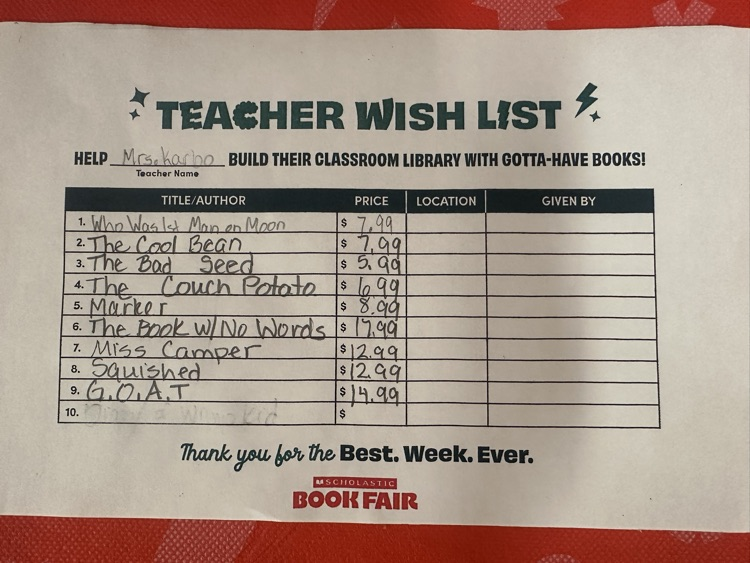 TEACHER WISH LIST
HELP Mrs. Karbo BUILD THEIR CLASSROOM LIBRARY WITH GOTTA-HAVE BOOKS!
Teacher Name
TITLE/AUTHOR PRICE LOCATION GIVEN BY
1. Who Was 1st Man on Moon $ 7.99
2. The Cool Bean $ 7.99
3. The Bad Seed $ 5.99
4. The Couch Potato $ 6.99
5. Marker $ 8.99
6. The Book W/No Words $ 17.99
7. Miss Camper $ 12.99
8. Squished $ 12.99
9. G.O.A.T $ 14.99
10. $
Thank you for the Best. Week. Ever.
SCHOLASTIC
BOOK FAIR